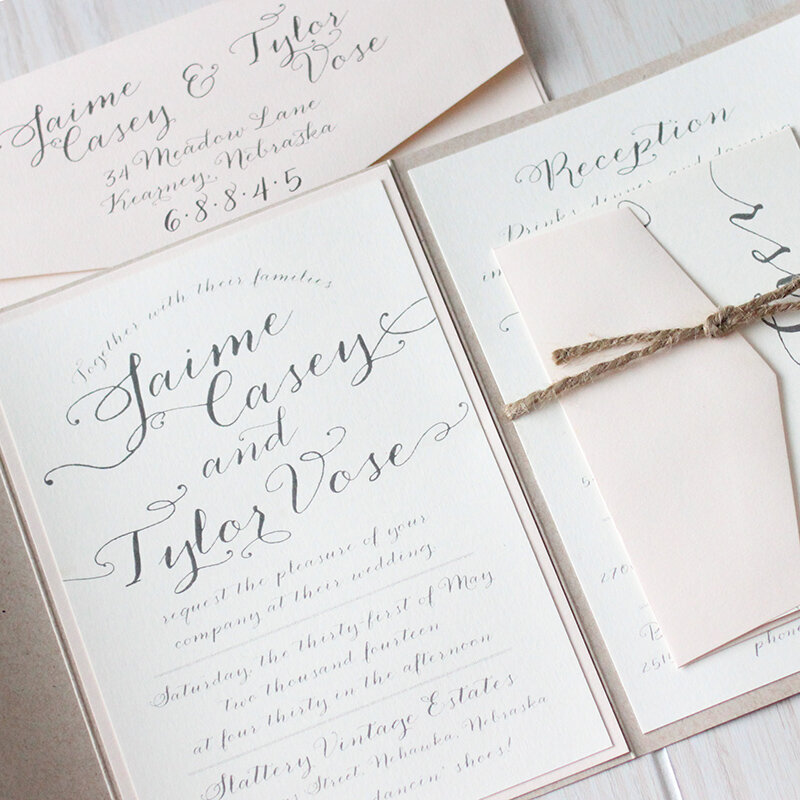 Jaime
Casey & Tylor
Vose
34 Meadow Lane
Kearney, Nebraska
6·8·8·4·5
Together with their families
Jaime
Casey
and
Tylor Vose
request the pleasure of your
company at their wedding.
Saturday, the thirty-first of May
two thousand fourteen
at four thirty in the afternoon
Slattery Vintage Estates
Street, Nehawka, Nebraska
dancin' shoes!
Reception
Drinks, dinner and
270
2514
phone